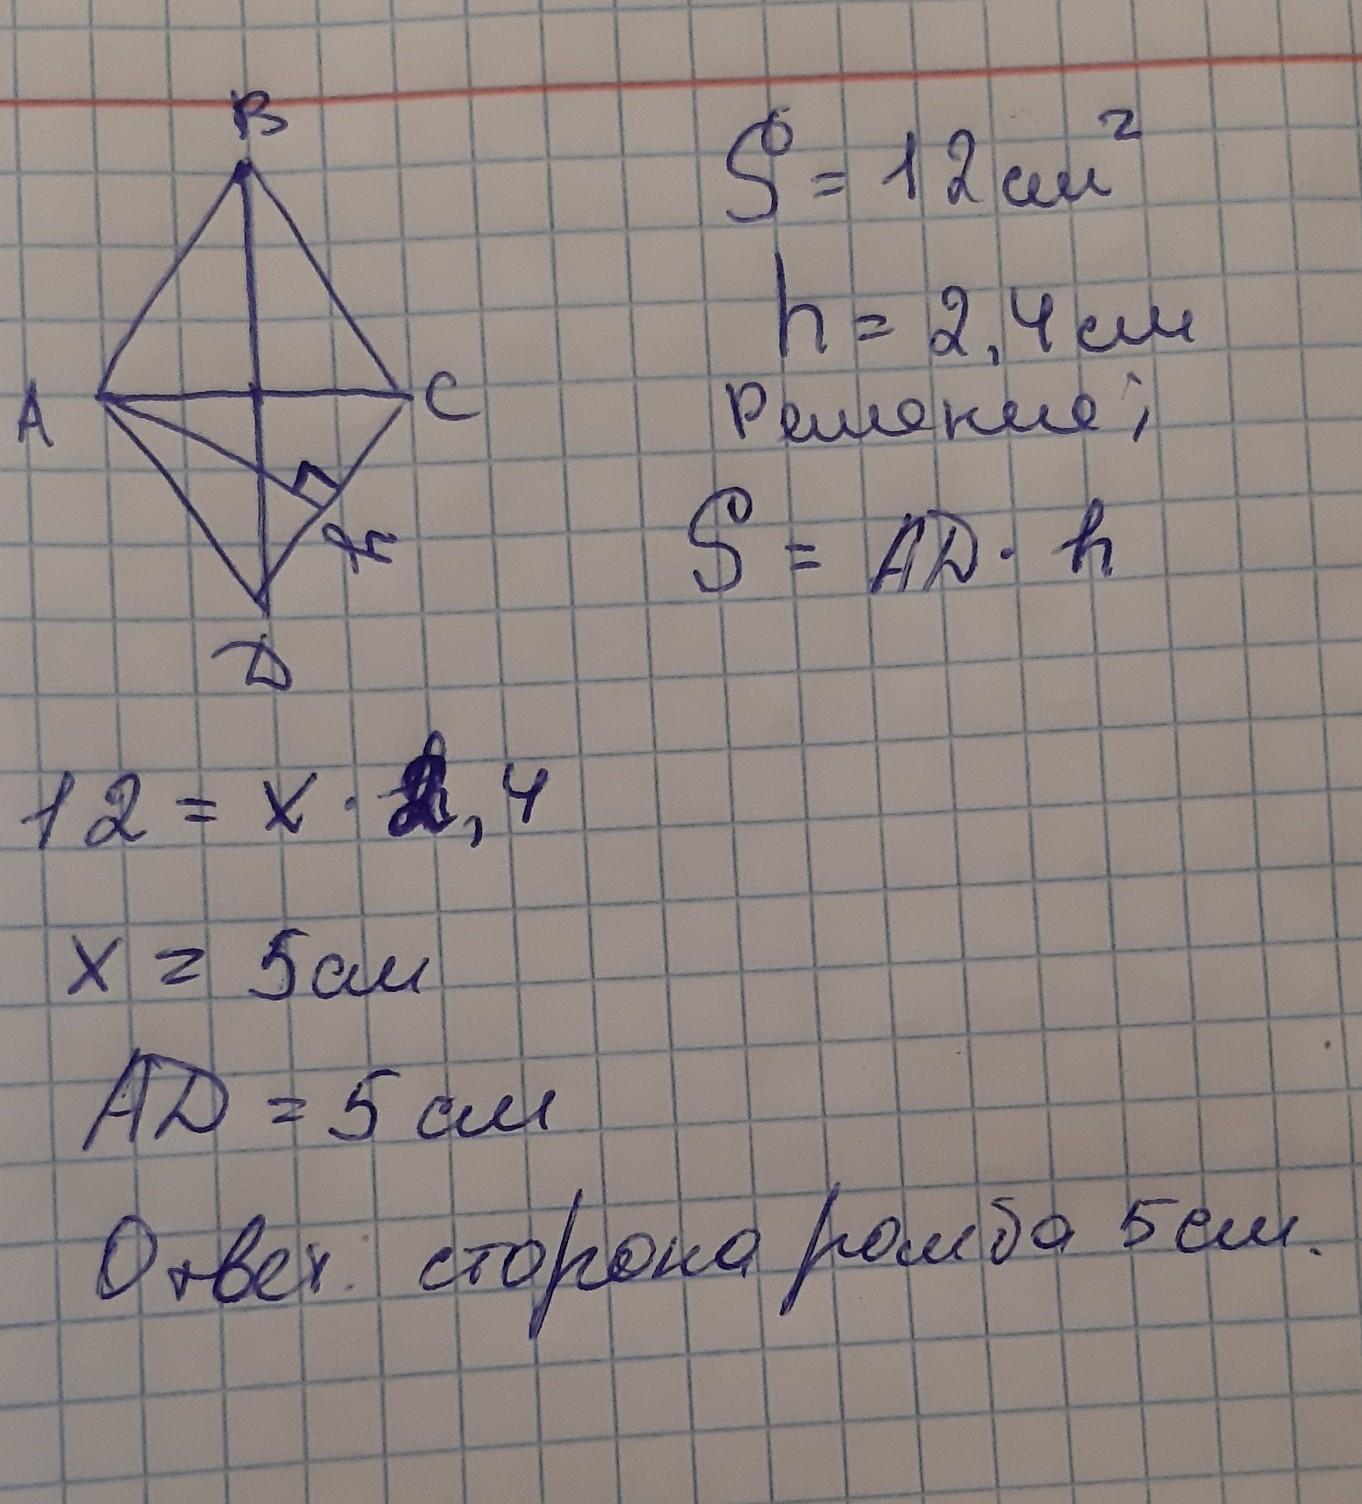 B
S = 12 см²
h = 2,4 см
A
C
Решение;
S = AD · h
D
12 = x · 2,4
x = 5 см
AD = 5 см
Ответ: сторона ромба 5 см.